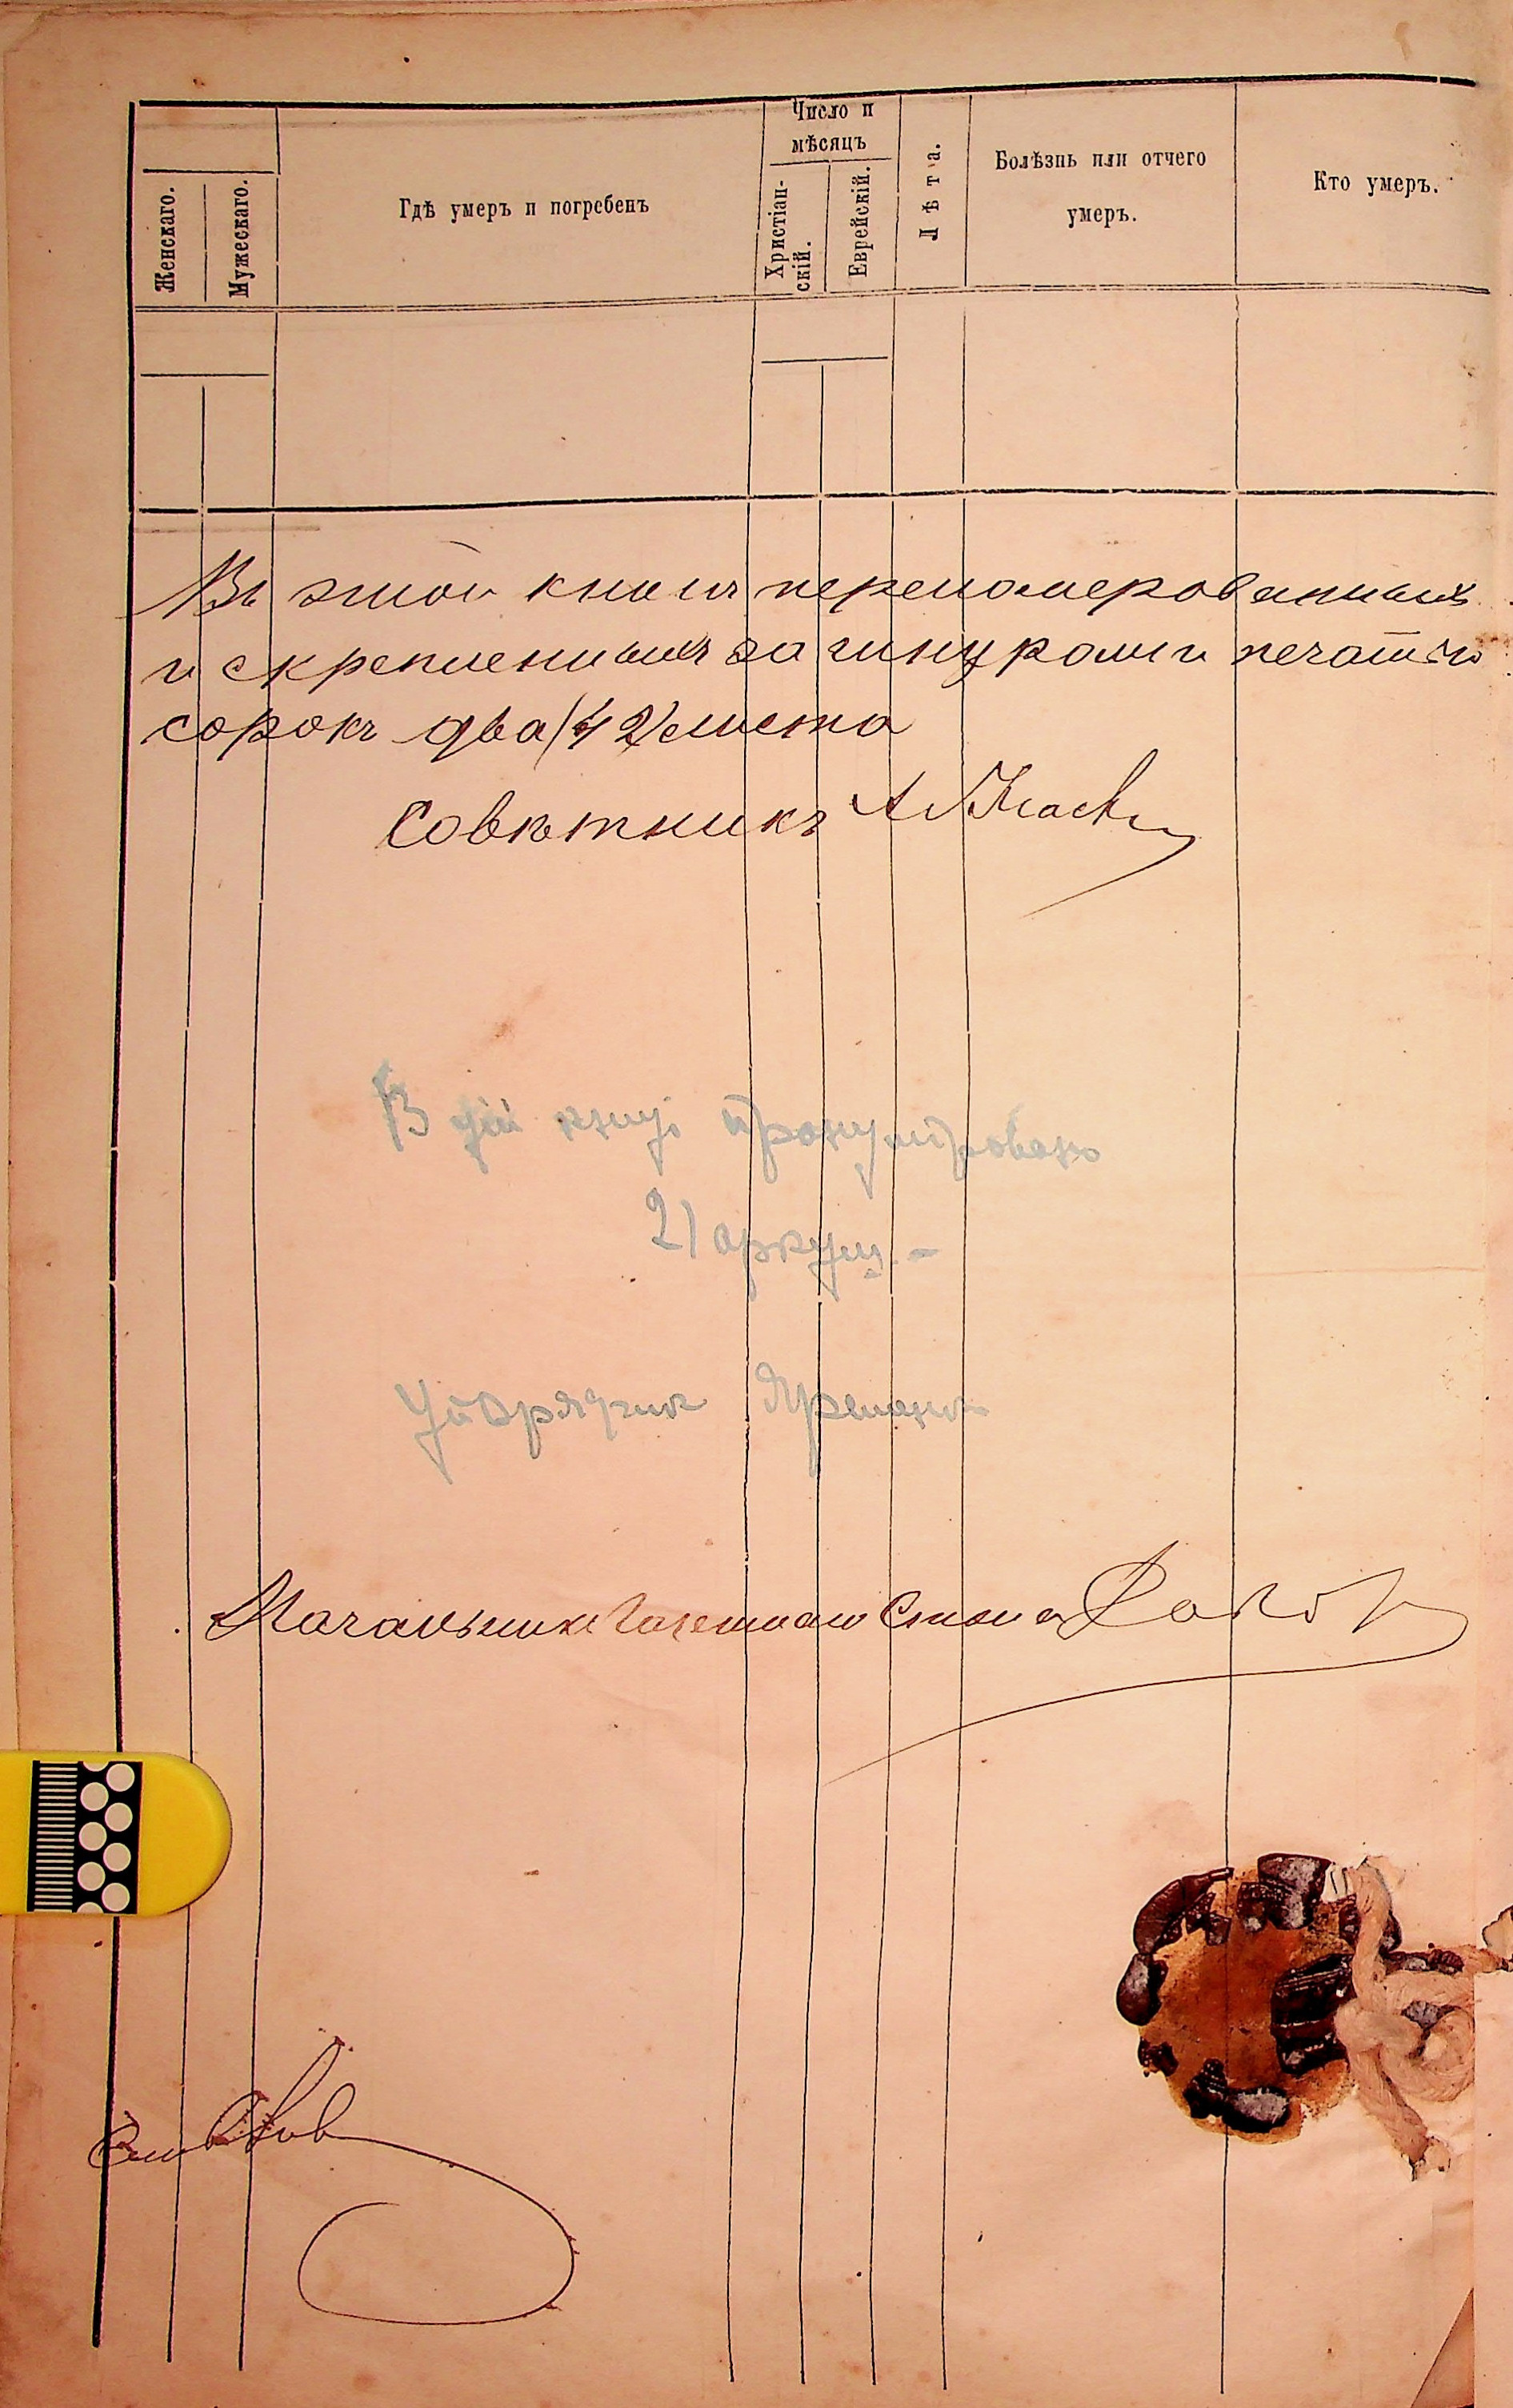 Женскаго.
Мужескаго.
Гдѣ умеръ и погребенъ
Число и
мѣсяцъ
Христіан-
скій.
Еврейскій.
Лѣта.
Болѣзнь или отчего
умеръ.
Кто умеръ.
Въ этой книгѣ перенумерованныхъ
и скрепленныхъ за шнуромъ и печатью
сорокъ два (42) листа
Совѣтникъ
В цій книзі пронумеровано
21 аркуш.-
Упорядчик
Начальникъ Газетнаго Стола